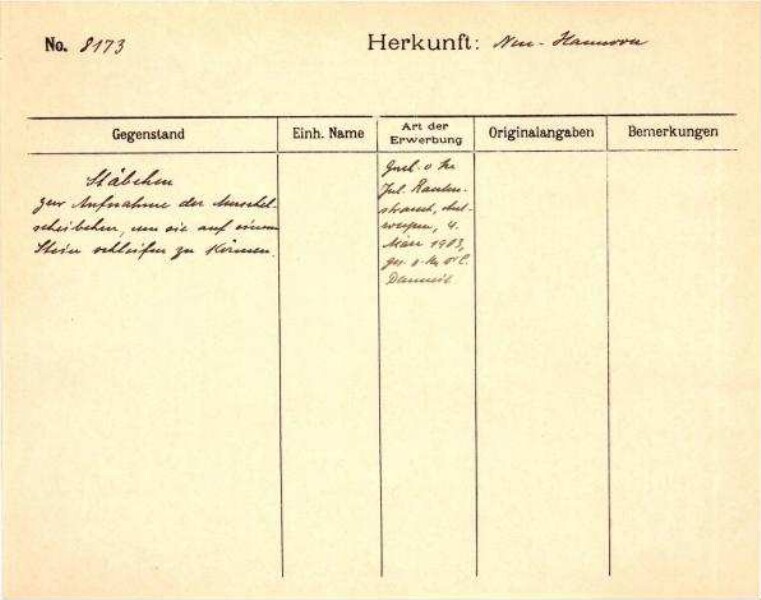 No. 8173
Herkunft: Neu-Hannover
Gegenstand
Einh. Name
Art der Erwerbung
Originalangaben
Bemerkungen
Stäbchen
zur Aufnahme der Muschel-
scheibchen, um sie auf einem
Stein schleifen zu können.
Jul. Rauten-
strauch, Ant-
werpen, 4.
März 1903,
ges. v.
Danneil